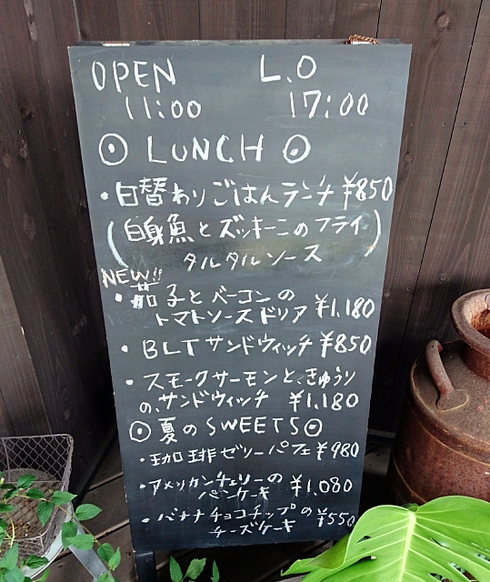 OPEN L.O
11:00 17:00
⊙ LUNCH ⊙
・日替わりごはんランチ ¥850
(白身魚とズッキーニのフライ
タルタルソース)
NEW!!
・茄子とベーコンの
トマトソースドリア ¥1,180
・BLTサンドウィッチ ¥850
・スモークサーモンと、きゅうり
の、サンドウィッチ ¥1,180
⊙ 夏のSWEETS ⊙
・珈琲ゼリーパフェ ¥980
・アメリカンチェリーの
パンケーキ ¥1,080
・バナナチョコチップの
チーズケーキ ¥550